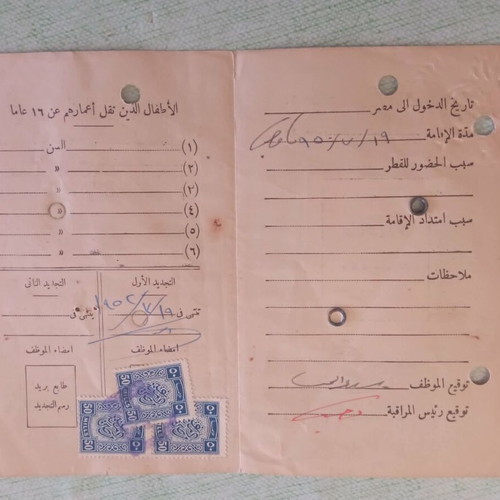 تاريخ الدخول الى مصر
مدة الإقامة ١٩/٧/٩٥٠
سبب الحضور للقطر
سبب امتداد الإقامة
ملاحظات
توقيع الموظف
توقيع رئيس المراقبة
الأطفال الذين تقل أعمارهم عن ١٦ عاما
(١) السن
(٢) »
(٣) »
(٤) »
(٥) »
(٦) »
التجديد الأول
التجديد الثانى
ينتهى فى
ينتهى فى
امضاء الموظف
امضاء الموظف
طابع بريد
رسم التجديد
50
50
50